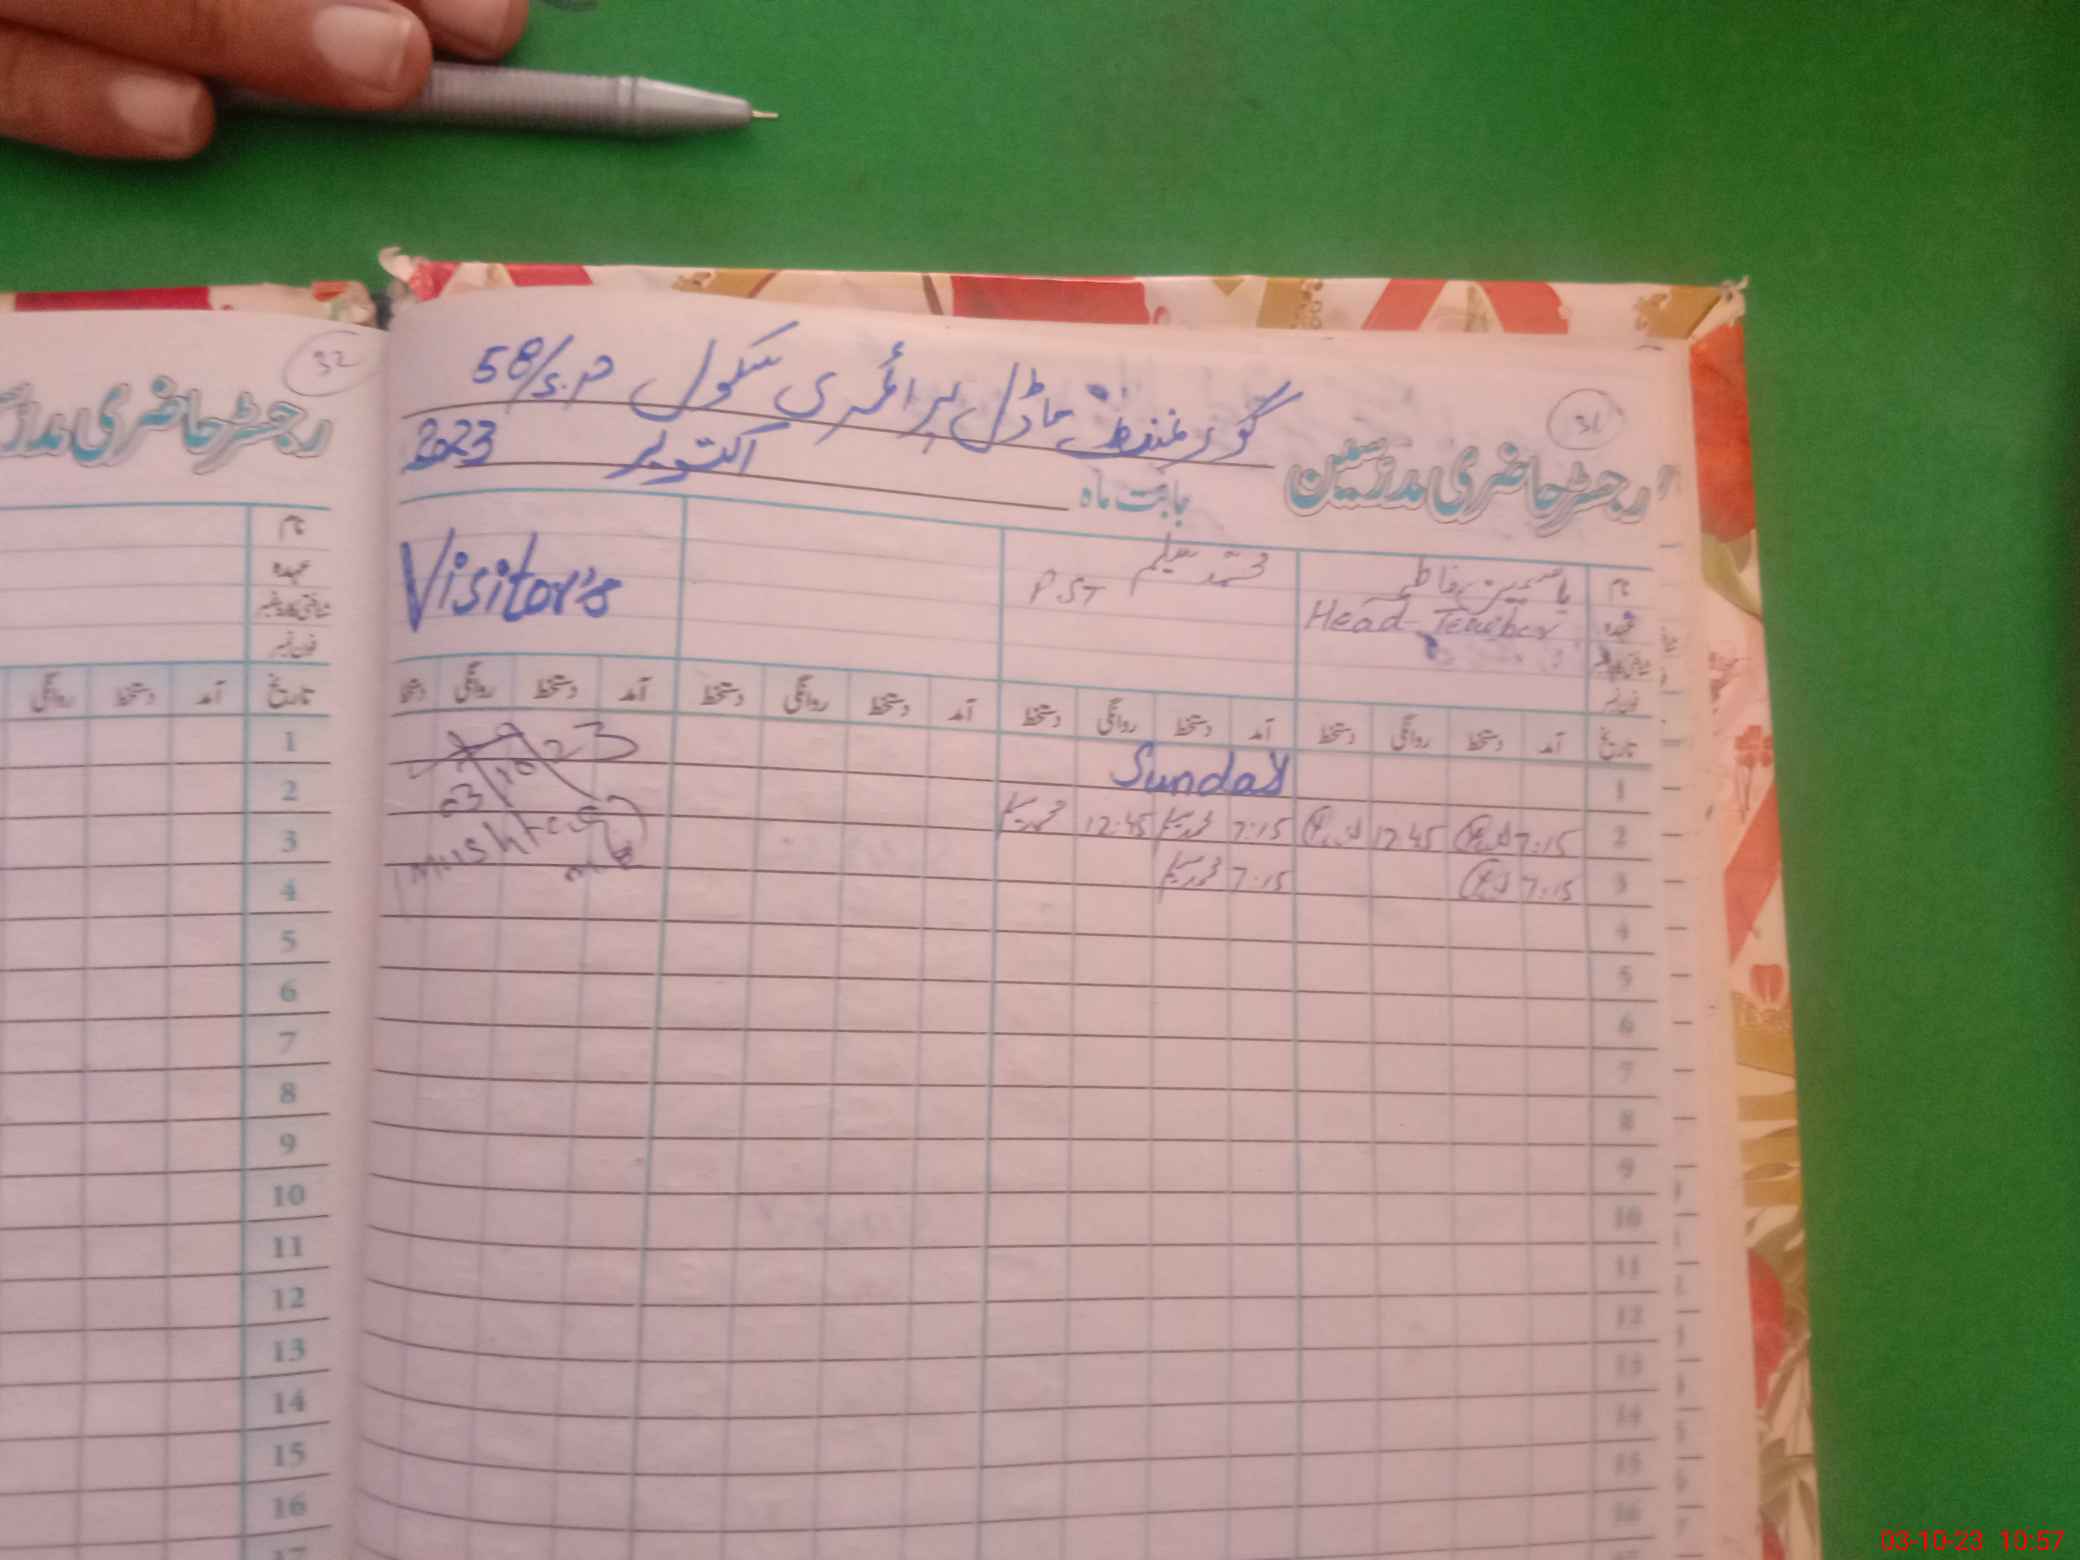 32
رجسٹر حاضری مدرّسین
نام
عہدہ
شناختی کارڈ نمبر
فون نمبر
تاریخ آمد دستخط روانگی
1
2
3
4
5
6
7
8
9
10
11
12
13
14
15
16
17
31
گورنمنٹ ماڈل پرائمری سکول 58/S.P
رجسٹر حاضری مدرّسین
بابت ماہ اکتوبر 2023
نام یاسمین فاطمہ محمد سلیم PST Visitor's
عہدہ Head Teacher
شناختی کارڈ نمبر
فون نمبر
تاریخ آمد دستخط روانگی دستخط آمد دستخط روانگی دستخط آمد دستخط روانگی دستخط آمد دستخط روانگی دستخط
1 Sunday
2 7:15 12 45 7:15 12:45
3 7:15 7:15
03 10 23
4
5
6
7
8
9
10
11
12
13
14
15
16
03-10-23 10:57